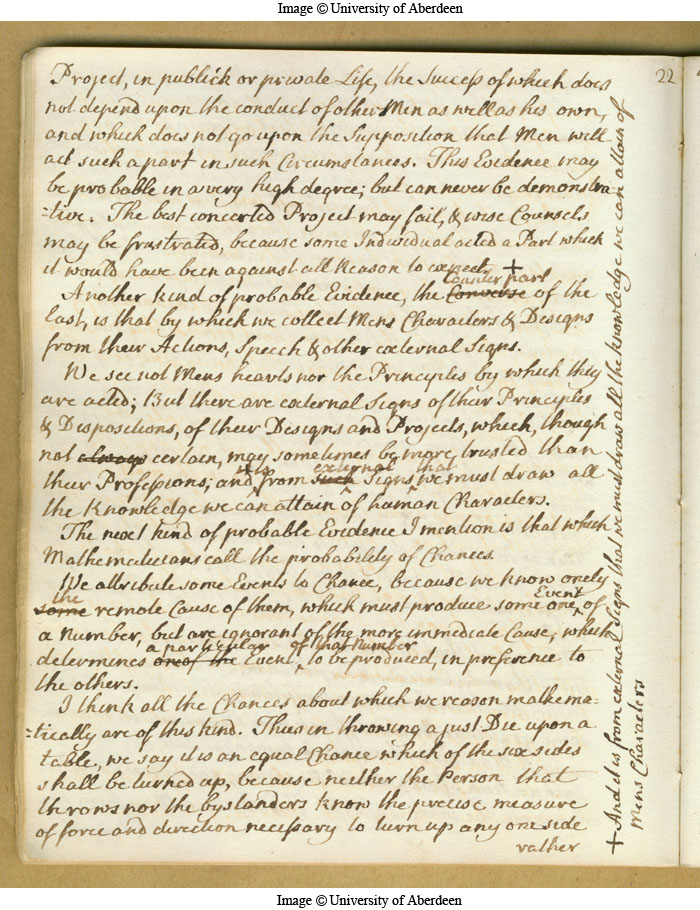 Image © University of Aberdeen
22
Project, in publick or private Life, the Success of which does
not depend upon the conduct of other Men as well as his own,
and which does not go upon the Supposition that Men will
act such a part in such Circumstances. This Evidence may
be probable in a very high degree; but can never be demonstra-
=tive. The best concerted Project may fail, & wise Counsels
may be frustrated, because some Individual acted a Part which
it would have been against all Reason to expect. +
counter part
Another kind of probable Evidence, the Converse of the
last, is that by which we collect Mens Characters & Designs
from their Actions, Speech & other external Signs.
We see not Mens hearts nor the Principles by which they
are acted; But there are external Signs of their Principles
& Dispositions, of their Designs and Projects, which, though
not always certain, may sometimes be more trusted than
it is external that
their Professions; and ^ from such Signs ^ we must draw all
the knowledge we can attain of human Characters.
The next kind of probable Evidence I mention is that which
Mathematicians call the probability of Chances.
We attribute some Events to Chance, because we know onely
the Event
some remote Cause of them, which must produce some one ^ of
a Number, but are ignorant of the more immediate Cause, which
a particular of that Number
determines one of the Event ^ to be produced, in preference to
the others.
I think all the Chances about which we reason mathema-
=tically are of this kind. Thus in throwing a just Die upon a
table, we say it is an equal Chance which of the six sides
shall be turned up, because neither the Person that
throws nor the bystanders know the precise measure
of force and direction necessary to turn up any one side
rather
+ And it is from external Signs that we must draw all the knowledge we can attain of
Mens Characters
Image © University of Aberdeen